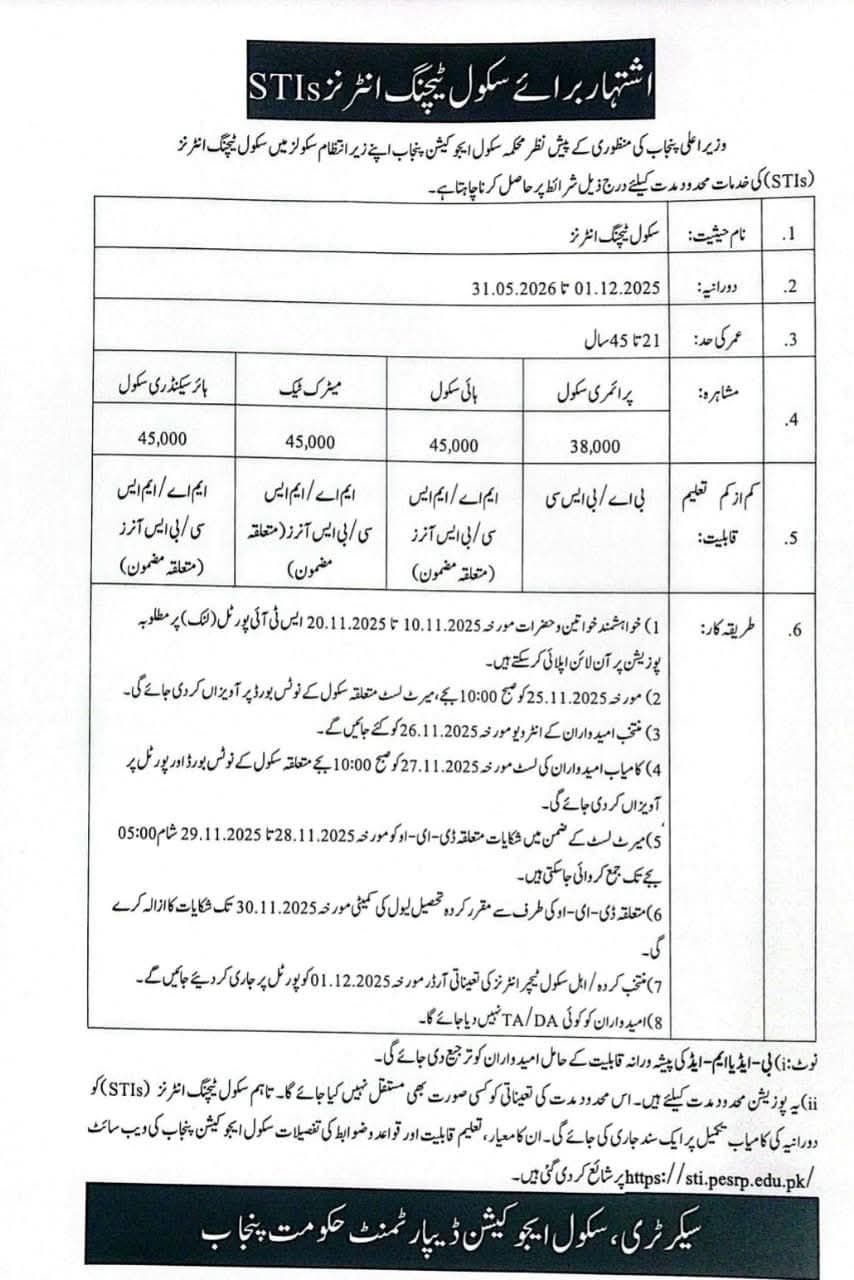 اشتہار برائے سکول ٹیچنگ انٹرنز STIs
وزیر اعلی پنجاب کی منظوری کے پیش نظر محکمہ سکول ایجوکیشن پنجاب اپنے زیر انتظام سکولز میں سکول ٹیچنگ انٹرنز
(STIs) کی خدمات محدود مدت کیلئے درج ذیل شرائط پر حاصل کرنا چاہتا ہے۔
1. نام حیثیت: سکول ٹیچنگ انٹرنز
2. دورانیہ: 01.12.2025 تا 31.05.2026
3. عمر کی حد: 21 تا 45 سال
4. مشاہرہ: پرائمری سکول ہائی سکول میٹرک ٹیک ہائر سیکنڈری سکول
38,000 45,000 45,000 45,000
5. کم از کم تعلیم بی اے/بی ایس سی ایم اے/ایم ایس ایم اے/ایم ایس ایم اے/ایم ایس
قابلیت: سی/بی ایس آنرز سی/بی ایس آنرز (متعلقہ سی/بی ایس آنرز
(متعلقہ مضمون) مضمون) (متعلقہ مضمون)
6. طریقہ کار: 1) خواہشمند خواتین و حضرات مورخہ 10.11.2025 تا 20.11.2025 ایس ٹی آئی پورٹل (لنک) پر مطلوبہ
پوزیشن پر آن لائن اپلائی کر سکتے ہیں۔
2) مورخہ 25.11.2025 کو صبح 10:00 بجے، میرٹ لسٹ متعلقہ سکول کے نوٹس بورڈ پر آویزاں کر دی جائے گی۔
3) منتخب امیدواران کے انٹرویو مورخہ 26.11.2025 کو کئے جائیں گے۔
4) کامیاب امیدواران کی لسٹ مورخہ 27.11.2025 کو صبح 10:00 بجے متعلقہ سکول کے نوٹس بورڈ اور پورٹل پر
آویزاں کر دی جائے گی۔
5) میرٹ لسٹ کے ضمن میں شکایات متعلقہ ڈی-ای-او کو مورخہ 28.11.2025 تا 29.11.2025 شام 05:00
بجے تک جمع کروائی جا سکتی ہیں۔
6) متعلقہ ڈی-ای-او کی طرف سے مقرر کردہ تحصیل لیول کی کمیٹی مورخہ 30.11.2025 تک شکایات کا ازالہ کرے
گی۔
7) منتخب کردہ/اہل سکول ٹیچر انٹرنز کی تعیناتی آرڈر مورخہ 01.12.2025 کو پورٹل پر جاری کر دیئے جائیں گے۔
8) امیدواران کو کوئی TA/DA نہیں دیا جائے گا۔
نوٹ: i) بی-ایڈ یا ایم-ایڈ کی پیشہ ورانہ قابلیت کے حامل امیدواران کو ترجیح دی جائے گی۔
ii) یہ پوزیشن محدود مدت کیلئے ہیں۔ اس محدود مدت کی تعیناتی کو کسی صورت بھی مستقل نہیں کیا جائے گا۔ تاہم سکول ٹیچنگ انٹرنز (STIs) کو
دورانیہ کی کامیاب تکمیل پر ایک سند جاری کی جائے گی۔ ان کا معیار، تعلیم قابلیت اور قواعد و ضوابط کی تفصیلات سکول ایجوکیشن پنجاب کی ویب سائٹ
https://sti.pesrp.edu.pk/ پر شائع کر دی گئی ہیں۔
سیکرٹری، سکول ایجوکیشن ڈیپارٹمنٹ حکومت پنجاب